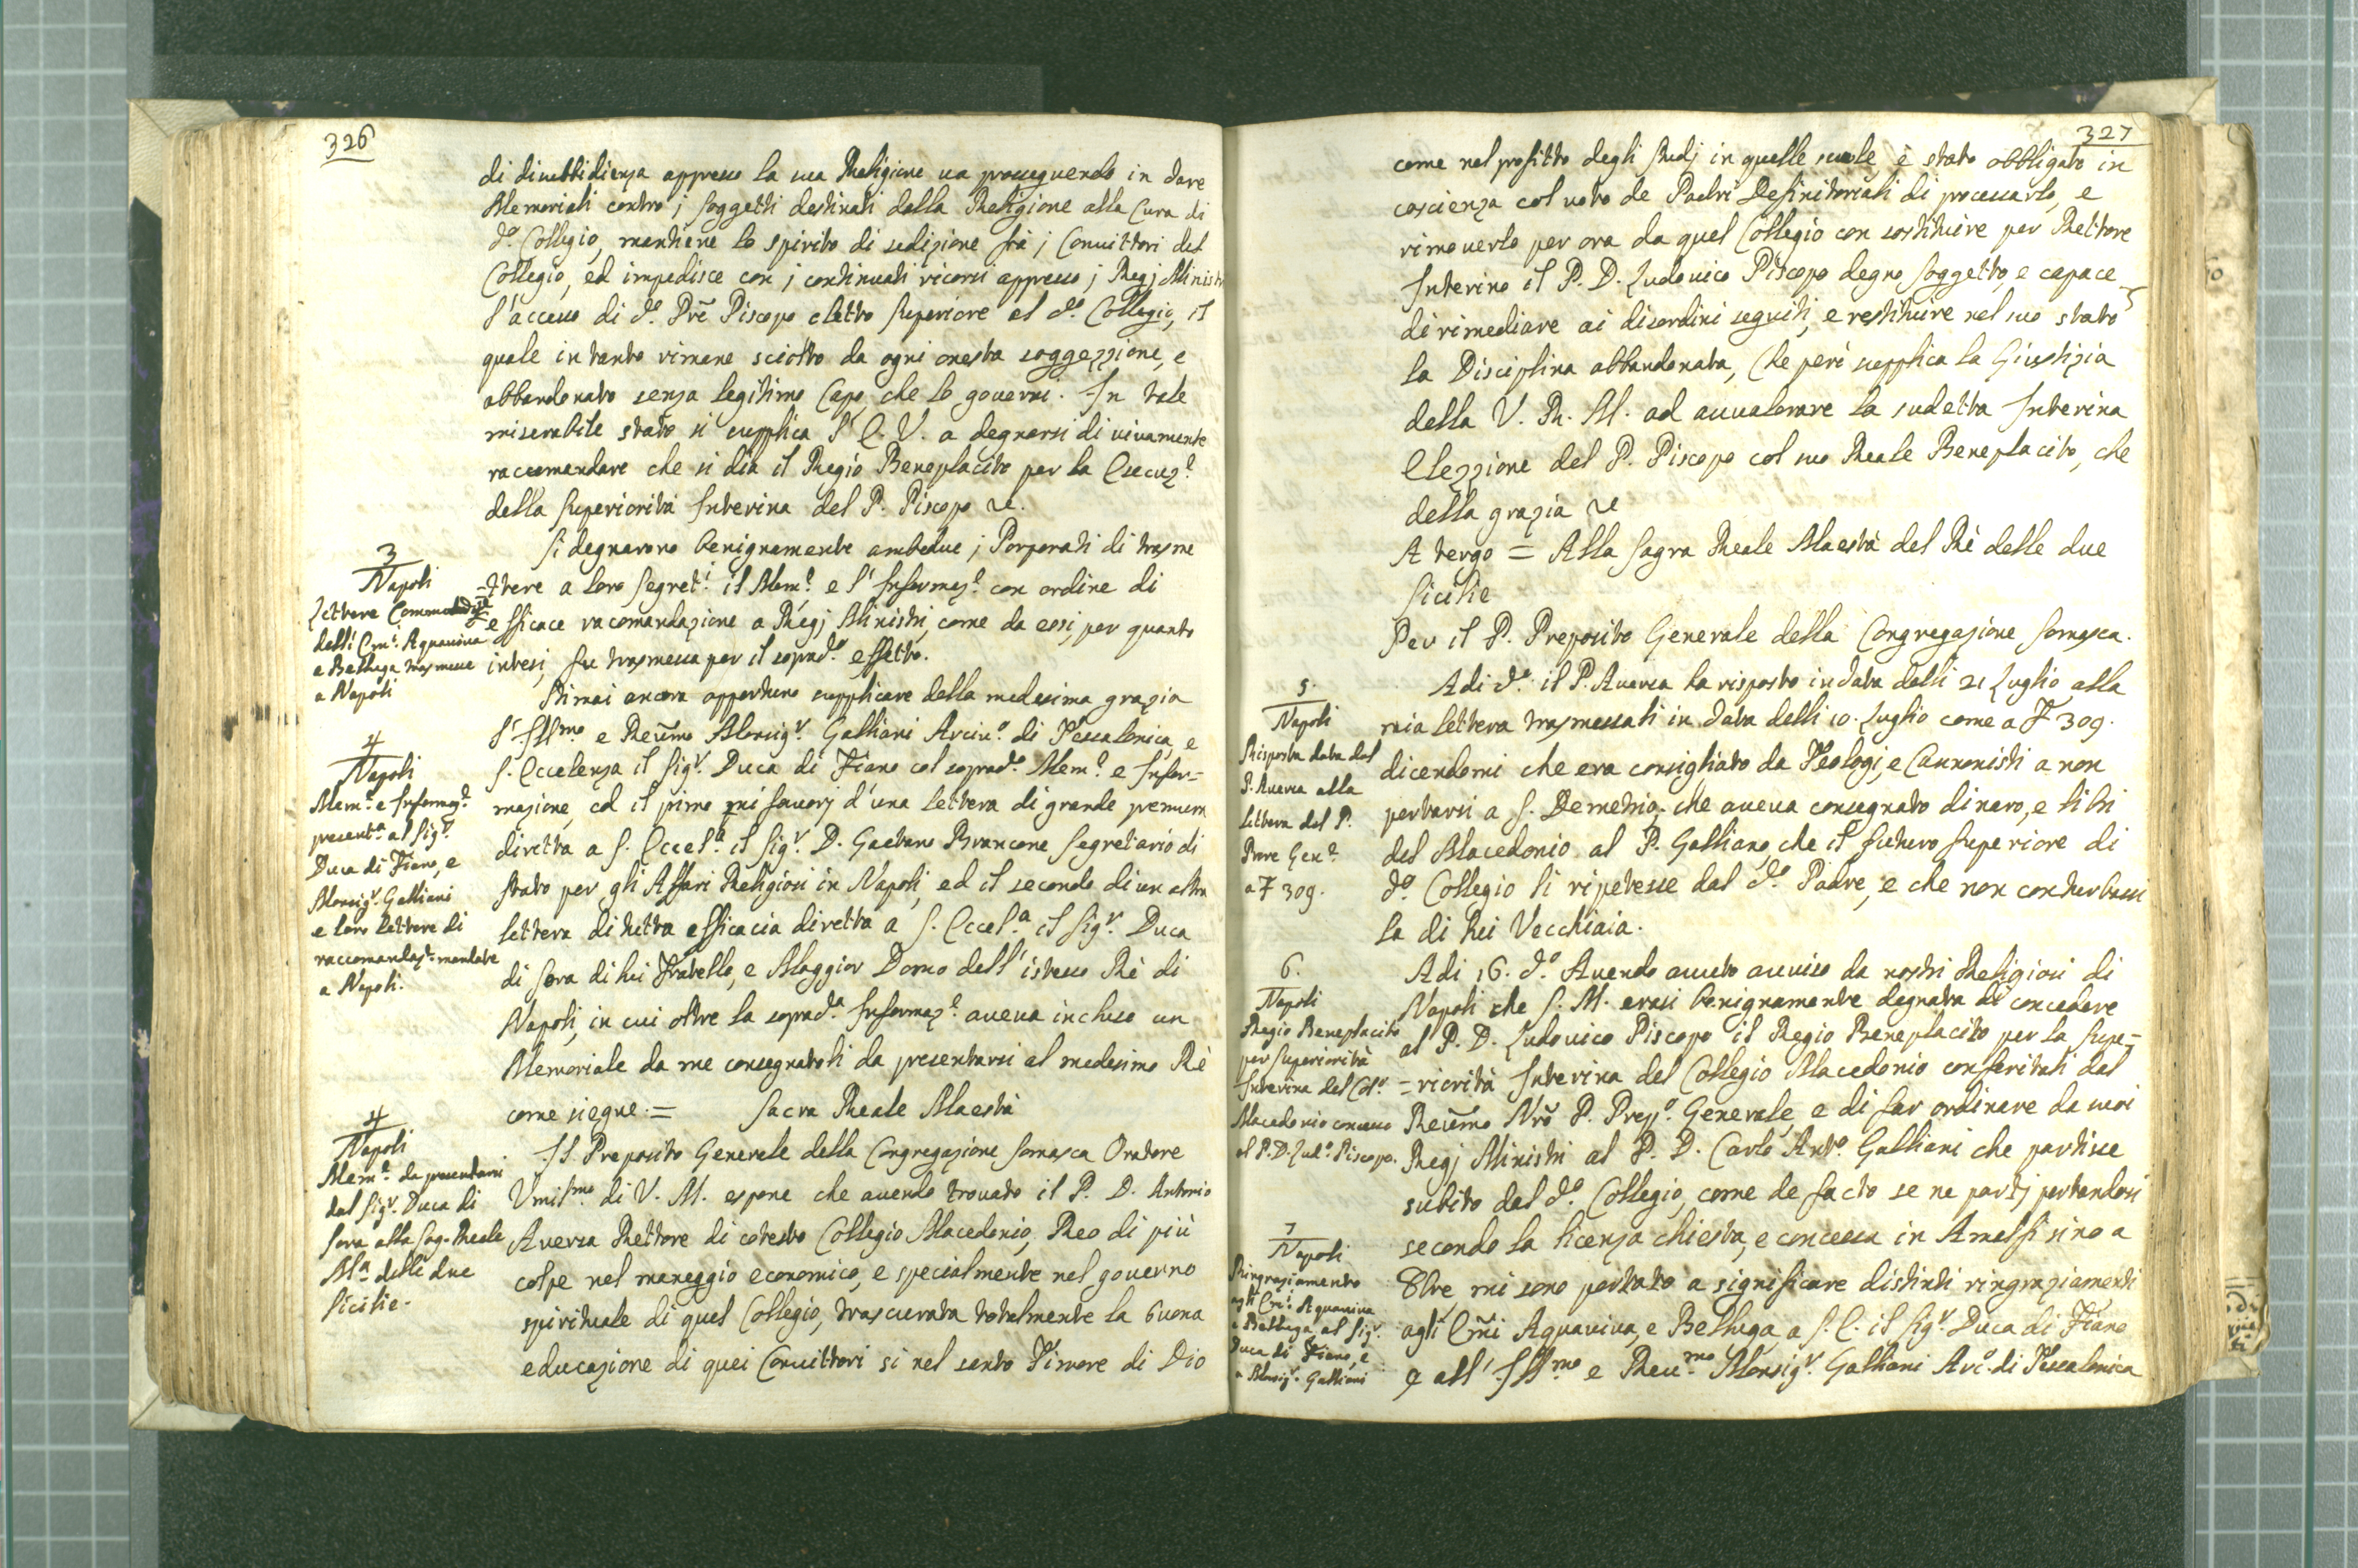 326
di disubbidienza appresso la sua Religione va proseguendo in dare
Memoriali contro j soggetti destinati dalla Religione alla Cura di
d.º Collegio, mantiene lo spirito di sedizione frà j Convittori del
Collegio, ed impedisce con j continuati ricorsi appresso j Regj Ministri
l'accesso di d.º Prẽ Piscopo eletto Superiore al d.º Collegio, il
quale intanto rimane sciolto da ogni onesta soggezzione, e
abbandonato senza legitimo Capo che lo governi. In tale
miserabile stato si supplica l'E. V. a degnarsi di vivamente
raccomandare che si dia il Regio Beneplacito per la Esecuz.e
della Superiorità Interina del P. Piscopo &c.
3
Napoli
Lettere Commendatizie
delli Em.i Aquaviva
e Belluga trasmesse
a Napoli
Si degnarono benignamente ambedue j Porporati di trasme
=ttere a loro Segret.i il Mem.e e l'Informaz.e con ordine di
efficace racomandazione a Regj Ministri, come da essi, per quanto
intesi, fu trasmessa per il soprad.º effetto.
Stimai ancora opportuno supplicare della medesima grazia
4
Napoli
Mem.e e Informaz.e
present.e al Sig.r
Duca di Fiano, e
Monsig.r Galliani
e loro lettere di
raccomandaz.e mandate
a Napoli.
l'Ill.mo e Reũmo Monsig.r Galliani Arciv.º di Tessalonica, e
S. Eccelenza il Sig.r Duca di Fiano col soprad.º Mem.e e Infor=
mazione, ed il primo mi favorj d'una lettera di grande premura
diretta a S. Eccel.a il Sig.r D. Gaetano Brancone Segretario di
Stato per gli Affari Religiosi in Napoli, ed il secondo di un altra
lettera di tutta efficacia diretta a S. Eccel.a il Sig.r Duca
di Sora di lui Fratello, e Maggior Domo dell'istesso Rè di
Napoli, in cui oltre la soprad.a Informaz.e aveva incluso un
Memoriale da me consegnatoli da presentarsi al medesimo Rè
come siegue. = Sacra Reale Maestà
4
Napoli
Mem.e da presentarsi
dal Sig.r Duca di
Sora alla Sag. Reale
M.a delle due
Sicilie.
Il Preposito Generale della Congregazione Somasca Oratore
Umil.mo di V. M. espone che avendo trovato il P. D. Antonio
Aversa Rettore di cotesto Collegio Macedonio, Reo di più
colpe nel maneggio economico, e specialmente nel governo
spirituale di quel Collegio, trascurata totalmente la buona
educazione di quei Convittori si nel santo Timore di Dio
327
come nel profitto degli studj in quelle scuole è stato obbligato in
coscienza col voto de Padri Definitoriali di processarlo, e
rimoverlo per ora da quel Collegio con sostituire per Rettore
Interino il P. D. Ludovico Piscopo degno soggetto, e capace
di rimediare ai disordini seguiti, e restituire nel suo stato
la Disciplina abbandonata, Che però supplica la Giustizia
della V. R. M. ad avvalorare la sudetta Interina
Elezzione del P. Piscopo col suo Reale Beneplacito, che
della grazia &c
A tergo = Alla Sagra Reale Maestà del Rè delle due
Sicilie
Per il P. Preposito Generale della Congregazione Somasca.
5.
Napoli
Risposta data dal
P. Aversa alla
lettera del P.
Prore Gen.e
a F 309.
Adi d.º il P. Aversa ha risposto in data delli 21 Luglio alla
mia lettera trasmessali in data delli 10. Luglio come a F 309.
dicendomi che era consigliato da Teologi, e Cannonisti a non
portarsi a S. Demetrio; che aveva consegnato dinaro, e libri
del Macedonio al P. Galliano, che il futuro Superiore di
d.º Collegio li ripetesse dal d.º Padre, e che non conturbassi
la di lui Vecchiaia.
6.
Napoli
Regio Beneplacito
per Superiorità
Interina del Col.º
Macedonio concesso
al P. D. Lud.º Piscopo.
Adi 16. d.º Avendo avuto avviso da nostri Religiosi di
Napoli che S. M. erasi benignamente degnata di concedere
al P. D. Ludovico Piscopo il Regio Beneplacito per la Supe=
=riorità Interina del Collegio Macedonio conferitali dal
Reũmo Nrõ P. Prep.º Generale, e di far ordinare da suoi
Regj Ministri al P. D. Carlo Ant.º Galliani che partisse
subito dal d.º Collegio, come de facto se ne partj portandosi
secondo la licenza chiesta, e concessa in Amelfi sino a
7
Napoli
Ringraziamento
agli Em.i Aquaviva
e Belluga, al Sig.r
Duca di Fiano, e
a Monsig.r Galliani
8bre mi sono portato a significare distinti ringraziamenti
agli Em̃i Aquaviva, e Belluga, a S. E. il Sig.r Duca di Fiano
e all'Ill.mo e Rev.mo Monsig.r Galliani Arc.º di Tessalonica